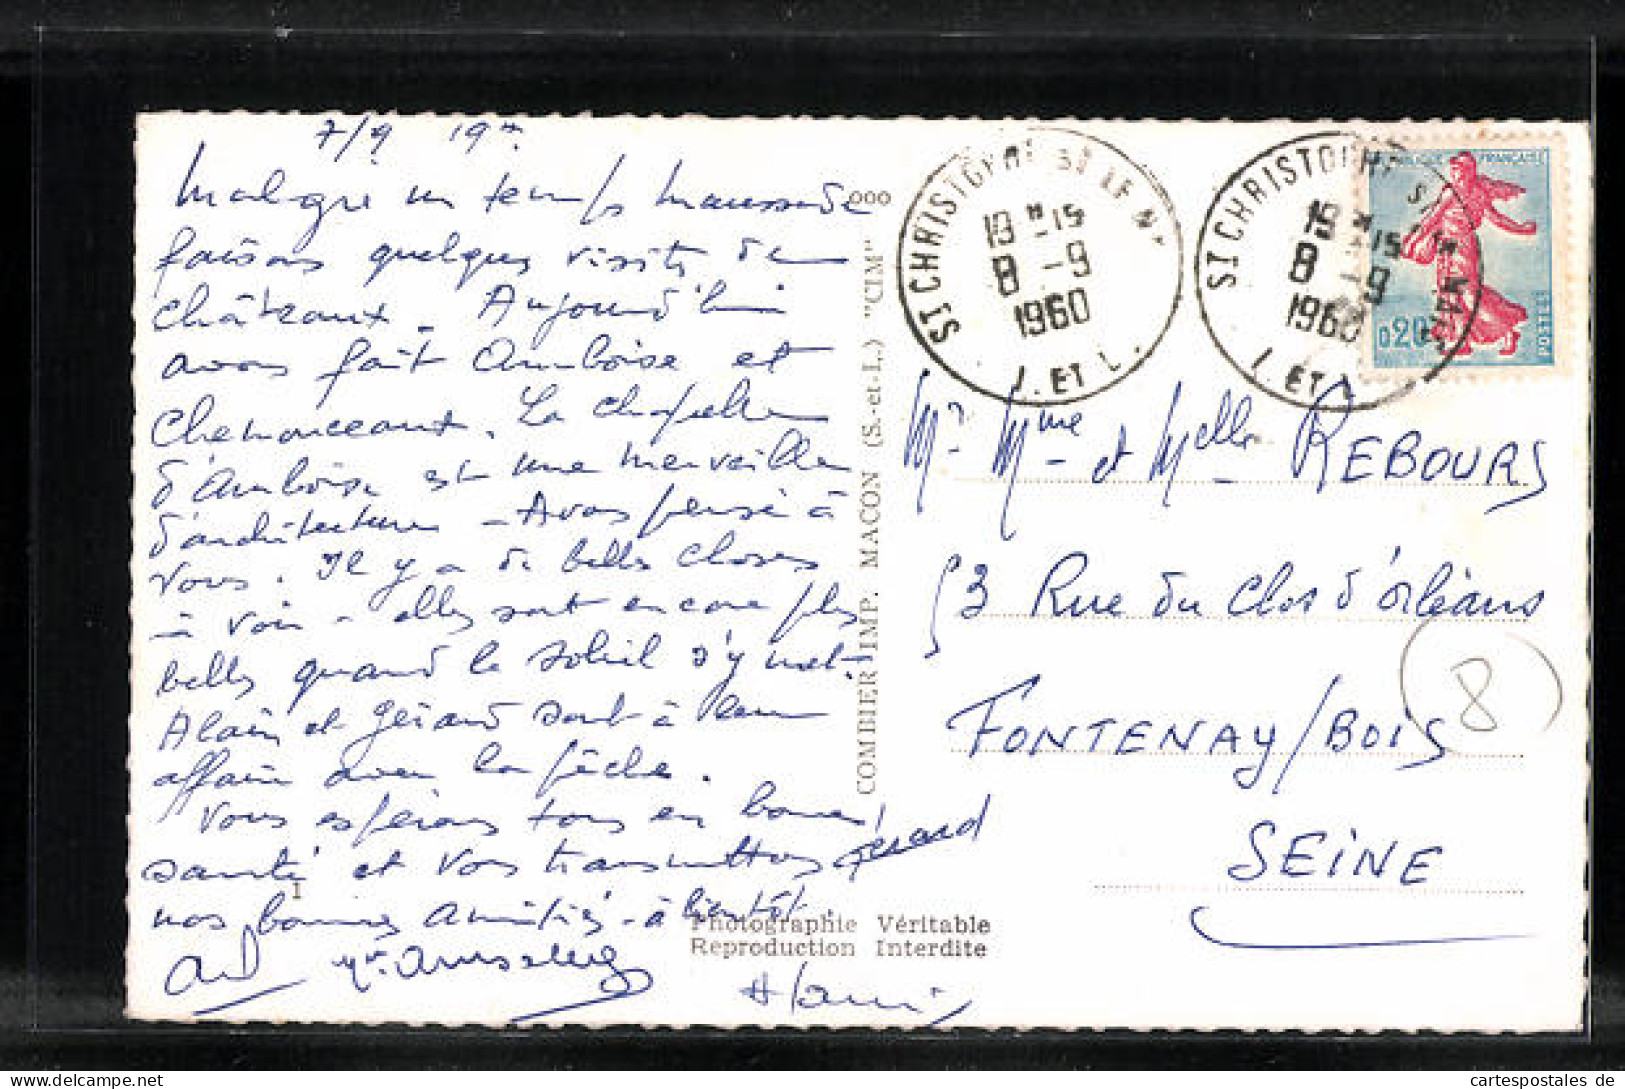 7/9 19
Malgré un temps maussade
faisons quelques visites de
châteaux. Aujourd'hui
avons fait Amboise et
Chenonceaux. La chapelle
d'Amboise est une merveille
d'architecture - Avons pensé à
vous. Il y a de belles choses
à voir - elles sont encore plus
belles quand le soleil s'y met.
Alain et Gérard sont à leur
affaire avec la pêche.
Vous espérons tous en bonne
santé et vous transmettons
nos bonnes amitiés - à bientôt.
Gérard
Alain
I
Photographie Véritable
Reproduction Interdite
COMBIER IMP. MACON (S.-et-L.) "CIM"
ST CHRISTOPHE S LE N
19 H 15
8 - 9
1960
I. ET L.
ST CHRISTOPHE S
19 H 15
8 - 9
1960
I. ET L
FRANÇAISE
0,20
POSTES
Mr Mme et Melle REBOURS
53 Rue du Clos d'Orléans
FONTENAY/BOIS
SEINE
8
cartespostales de